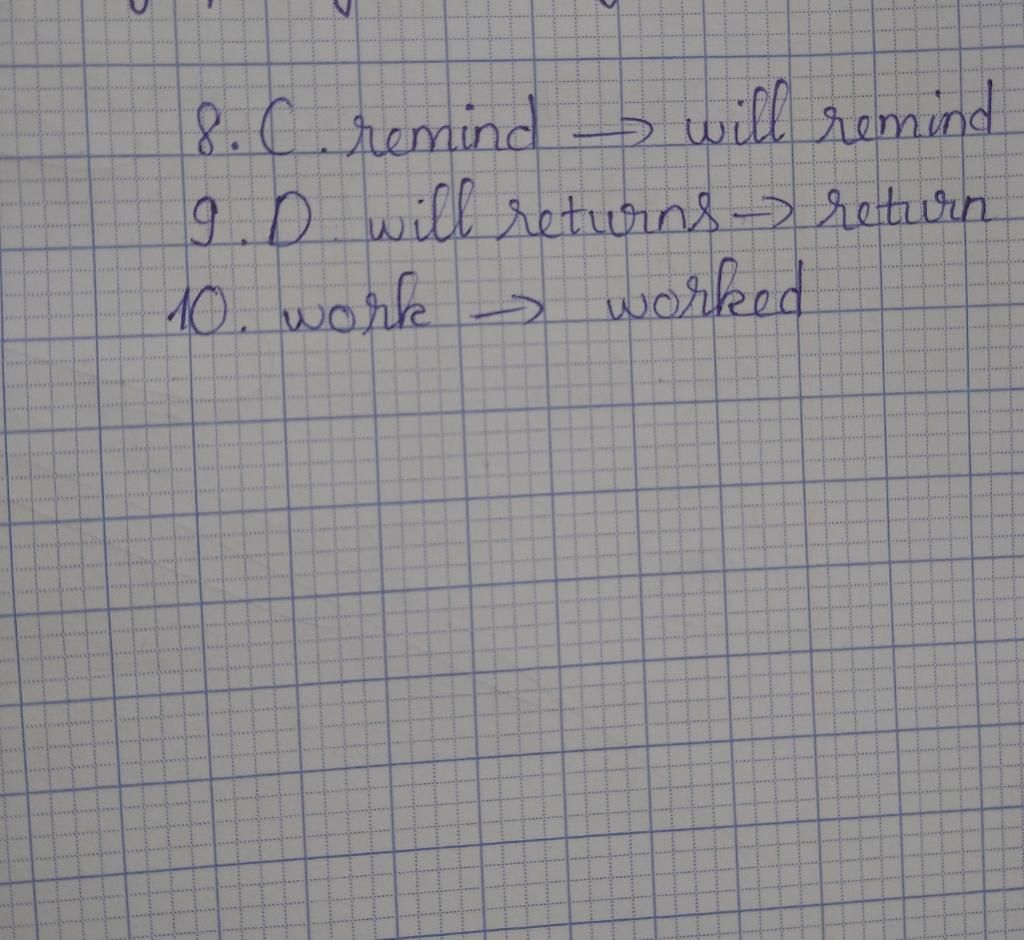 8. C. remind → will remind
9. D. will returns → return
10. work → worked